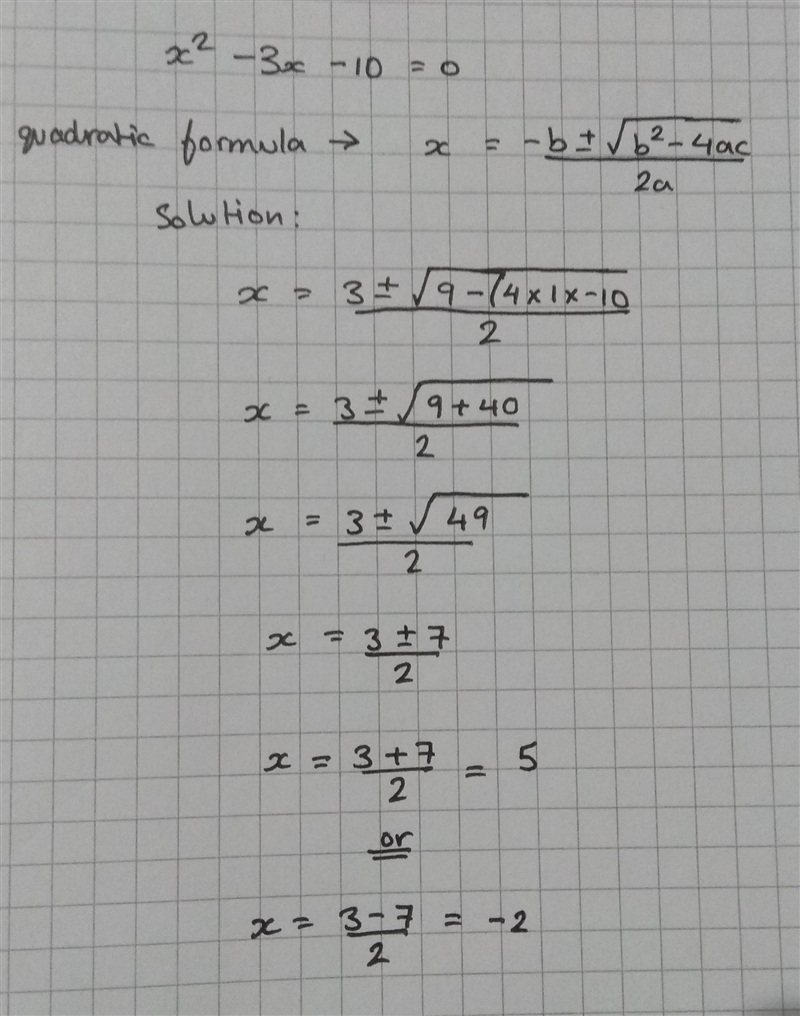 x² - 3x - 10 = 0
quadratic formula → x = -b ± √(b² - 4ac) / 2a
Solution:
x = 3 ± √(9 - (4 x 1 x -10) / 2
x = 3 ± √(9 + 40) / 2
x = 3 ± √49 / 2
x = 3 ± 7 / 2
x = 3 + 7 / 2 = 5
or
x = 3 - 7 / 2 = -2